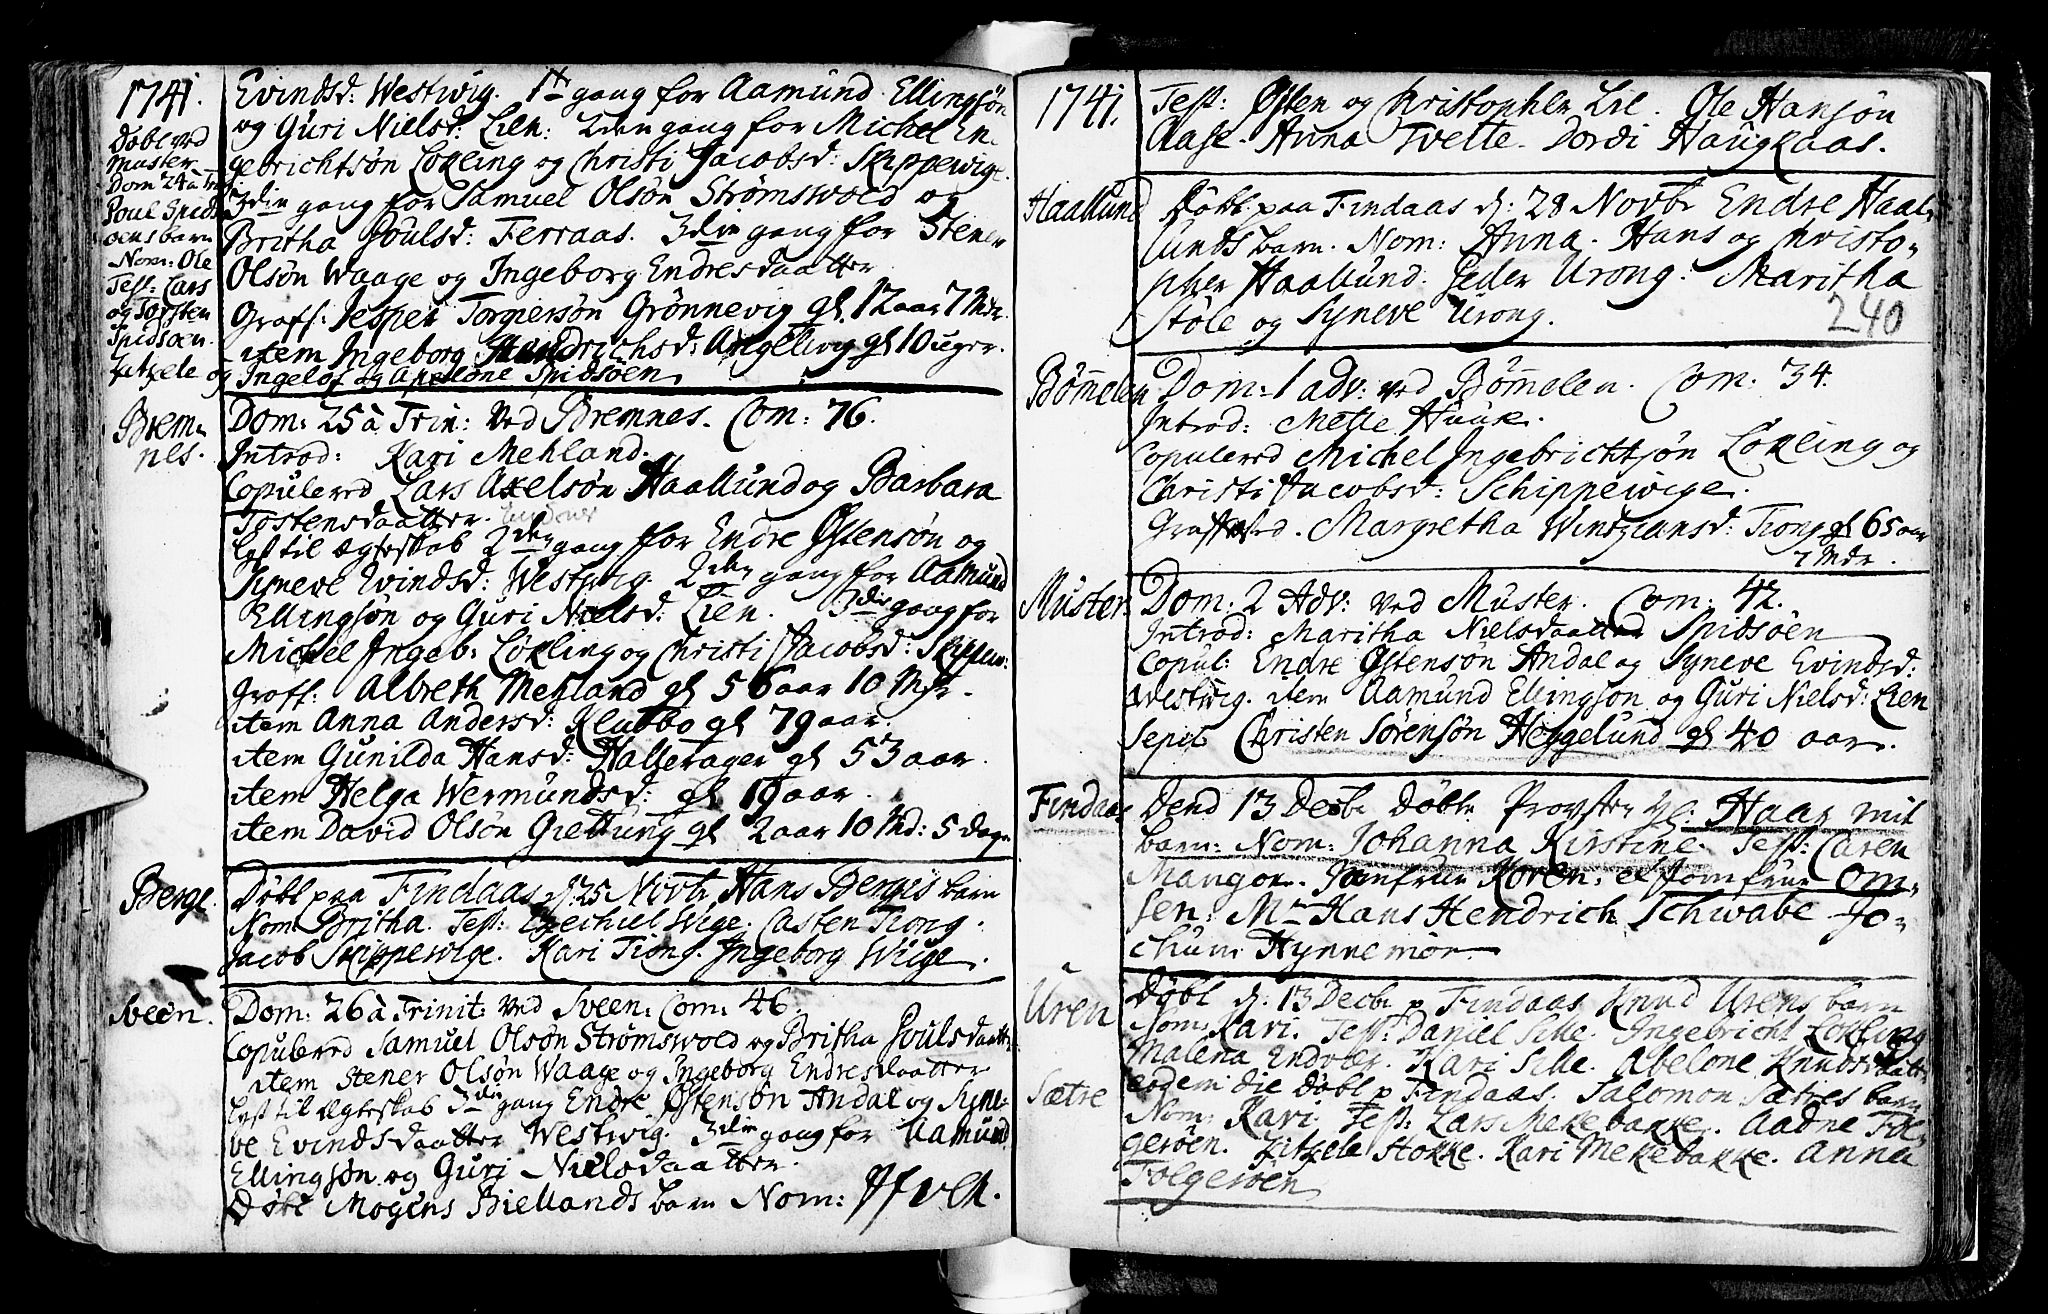 1741.
Døbt ved
Muster
Dom 24 à Trin
Poul Spids
oens barn
Nom: Ole
Test: Lars
og Torsten
Spidsøen.
Zitzele og Ingelof og Apelone Spidsøen
Evindsd: Westvig. 1te gang for Aamund Ellingsøn
og Guri Nielsd: Lien: 2den gang for Michel En
gebrichtsøn Løkling og Christi Jacobsd: Skippevige.
3die gang for Samuel Olsøn Strømswold og
Britha Poulsd: Ferraas. 3die gang for Stener
Olsøn Waage og Ingeborg Endresdaatter
Graff: Jesper Torgiersøn Grønnevig gl. 12 aar 7 Mdr.
item Ingeborg Hendrichsd: Angeltvig gl 10 uger.
Brem-
nes.
Dom: 25 à Trin: ved Bremnes. Com: 76.
Introd: Kari Mehland.
Copulered Lars Axelsøn Haallund og Barbara
Tostensdaatter.
lyst til Ægteskab 2den gang for Endre Østensøn og
Syneve Evindsd: Westvig. 2den gang for Aamund
Ellingsøn og Guri Nielsd: Lien. 3die gang for
Michel Ingeb: Løkling og Christi Jacobsd: Skippew:
Graff: Albreth Mehland gl 56 aar 10 Mdr.
item Anna Andersd: Klubbo gl 79 aar.
item Gunilda Hansd: Hallerager gl 53 aar.
item Helga Wermundsd: gl 19 aar.
item David Olsøn Giettung gl 2 aar 10 Md: 5 dage
Berge.
Døbt paa Findaas d: 25 Novbr Hans Berges barn
Nom Britha. Test: Ezechiel Wige. Casten Tiong.
Jacob Skippewige. Kari Tiong. Ingeborg Wiige.
Sveen.
Dom: 26 à Trinit: ved Sveen. Com: 46.
Copulered Samuel Olsøn Strømswold og Britha Poulsdaatt:
item Stener Olsøn Waage og Ingeborg Endresdaatter
lyst til Ægteskab 3die gang Endre Østensøn Andal og Syne-
ve Evindsdaatter Westvig. 3die gang for Aamund
Ellingsøn og Guri Nielsdaatter.
Døbt Mogens Biellands barn Nom:
1741.
Test: Østen og Christopher Lie. Ole Hansøn
Aase. Anna Tvette. Dordi Haugkaas.
Haallund
Døbt paa Findaas d: 28 Novbr Endre Haal-
lunds barn. Nom: Anna. Hans og Christo-
pher Haallund. Peder Urong: Maritha
Støle og Syneve Urong.
240
Bømmelen
Dom: 1 adv: ved Bømmelen. Com: 34.
Introd: Mette Huuk.
Copulered Michel Ingebrichtsøn Løkling og
Christi Jacobsd: Schippewige.
Graffsted. Margretha Wintziansd: Tiong gl 65 aar
7 Mdr.
Muster.
Dom: 2 Adv: ved Muster. Com: 42.
Introd: Maritha Nielsdaatter Spidsøen
Copul: Endre Østensøn Andal og Syneve Evindsd:
Westvig. item Aamund Ellingsøn og Guri Nielsd: Lien
Sepit Christen Sørensøn Heggelund gl 40 aar.
Findaas
Dend 13 Decbr Døbte Provsten Hl: Haar mit
barn: Nom: Johanna Kirstine. Test: Caren
Mangor. Jomfrue Koren. et Jomfrue Om-
sen: Mr Hans Hendrich Schwabe Jo-
chum Hynnemør.
Uren
Døbt d: 13 Decbr p Findaas Knud Urens barn
Nom: Kari. Test: Daniel Sille. Ingebricht Løkling
Malena Endvær. Kari Sille. Abelone Knudsdaatt:
Sætre
eodem die Døbt p Findaas. Salomon Sætres barn
Nom: Kari. Test: Lars Mekebakke. Aadne Fol-
gerøen. Zitzele Hokke. Kari Mekebakke. Anna
Folgerøen